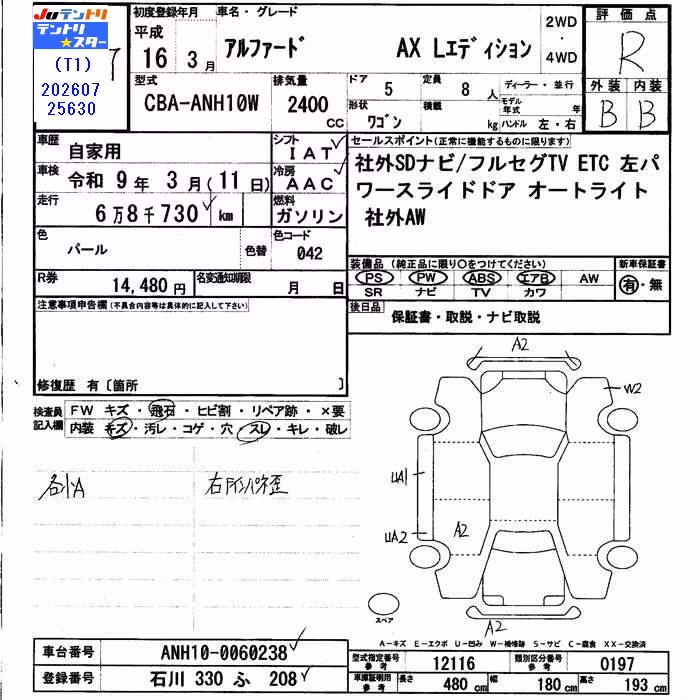 Juテントリ
テントリ★スター
(T1)
202607
25630
7
初度登録年月
平成
16 年 3 月
車名・グレード
アルファード AX Lエディション
2WD
・
4WD
評価点
R
外装 内装
B B
型式
CBA-ANH10W
排気量
2400 CC
ドア
5
定員
8 人
ディーラー・並行
形状
ワゴン
積載
kg
モデル年式 年
ハンドル 左・右
車歴
自家用
シフト
IAT
車検
令和 9 年 3 月(11 日)
冷房
AAC
走行
6万8千730 km
燃料
ガソリン
色
パール
色替
色コード
042
R券
14,480 円
名変通知期限
月 日
セールスポイント(正常に機能するものに限ります)
社外SDナビ/フルセグTV ETC 左パ
ワースライドドア オートライト
社外AW
装備品(純正品に限り○をつけてください)
新車保証書
PS PW ABS エアB AW
SR ナビ TV カワ
有・無
後日品
保証書・取説・ナビ取説
注意事項申告欄(不具合内容等は具体的に記入して下さい)
修復歴 有〔箇所 〕
検査員記入欄
FW キズ・飛石・ヒビ割・リペア跡・×要
内装 キズ・汚レ・コゲ・穴・スレ・キレ・破レ
各小A
右インパネ歪
A2
W2
UA1
UA2
A2
A2
スペア
A-キズ E-エクボ U-凹み W-補修跡 S-サビ C-腐食 XX-交換済
車台番号
ANH10-0060238
登録番号
石川 330 ふ 208
型式指定番号
参考
12116
類別区分番号
参考
0197
車庫証明用
参考
長さ
480 cm
幅
180 cm
高さ
193 cm